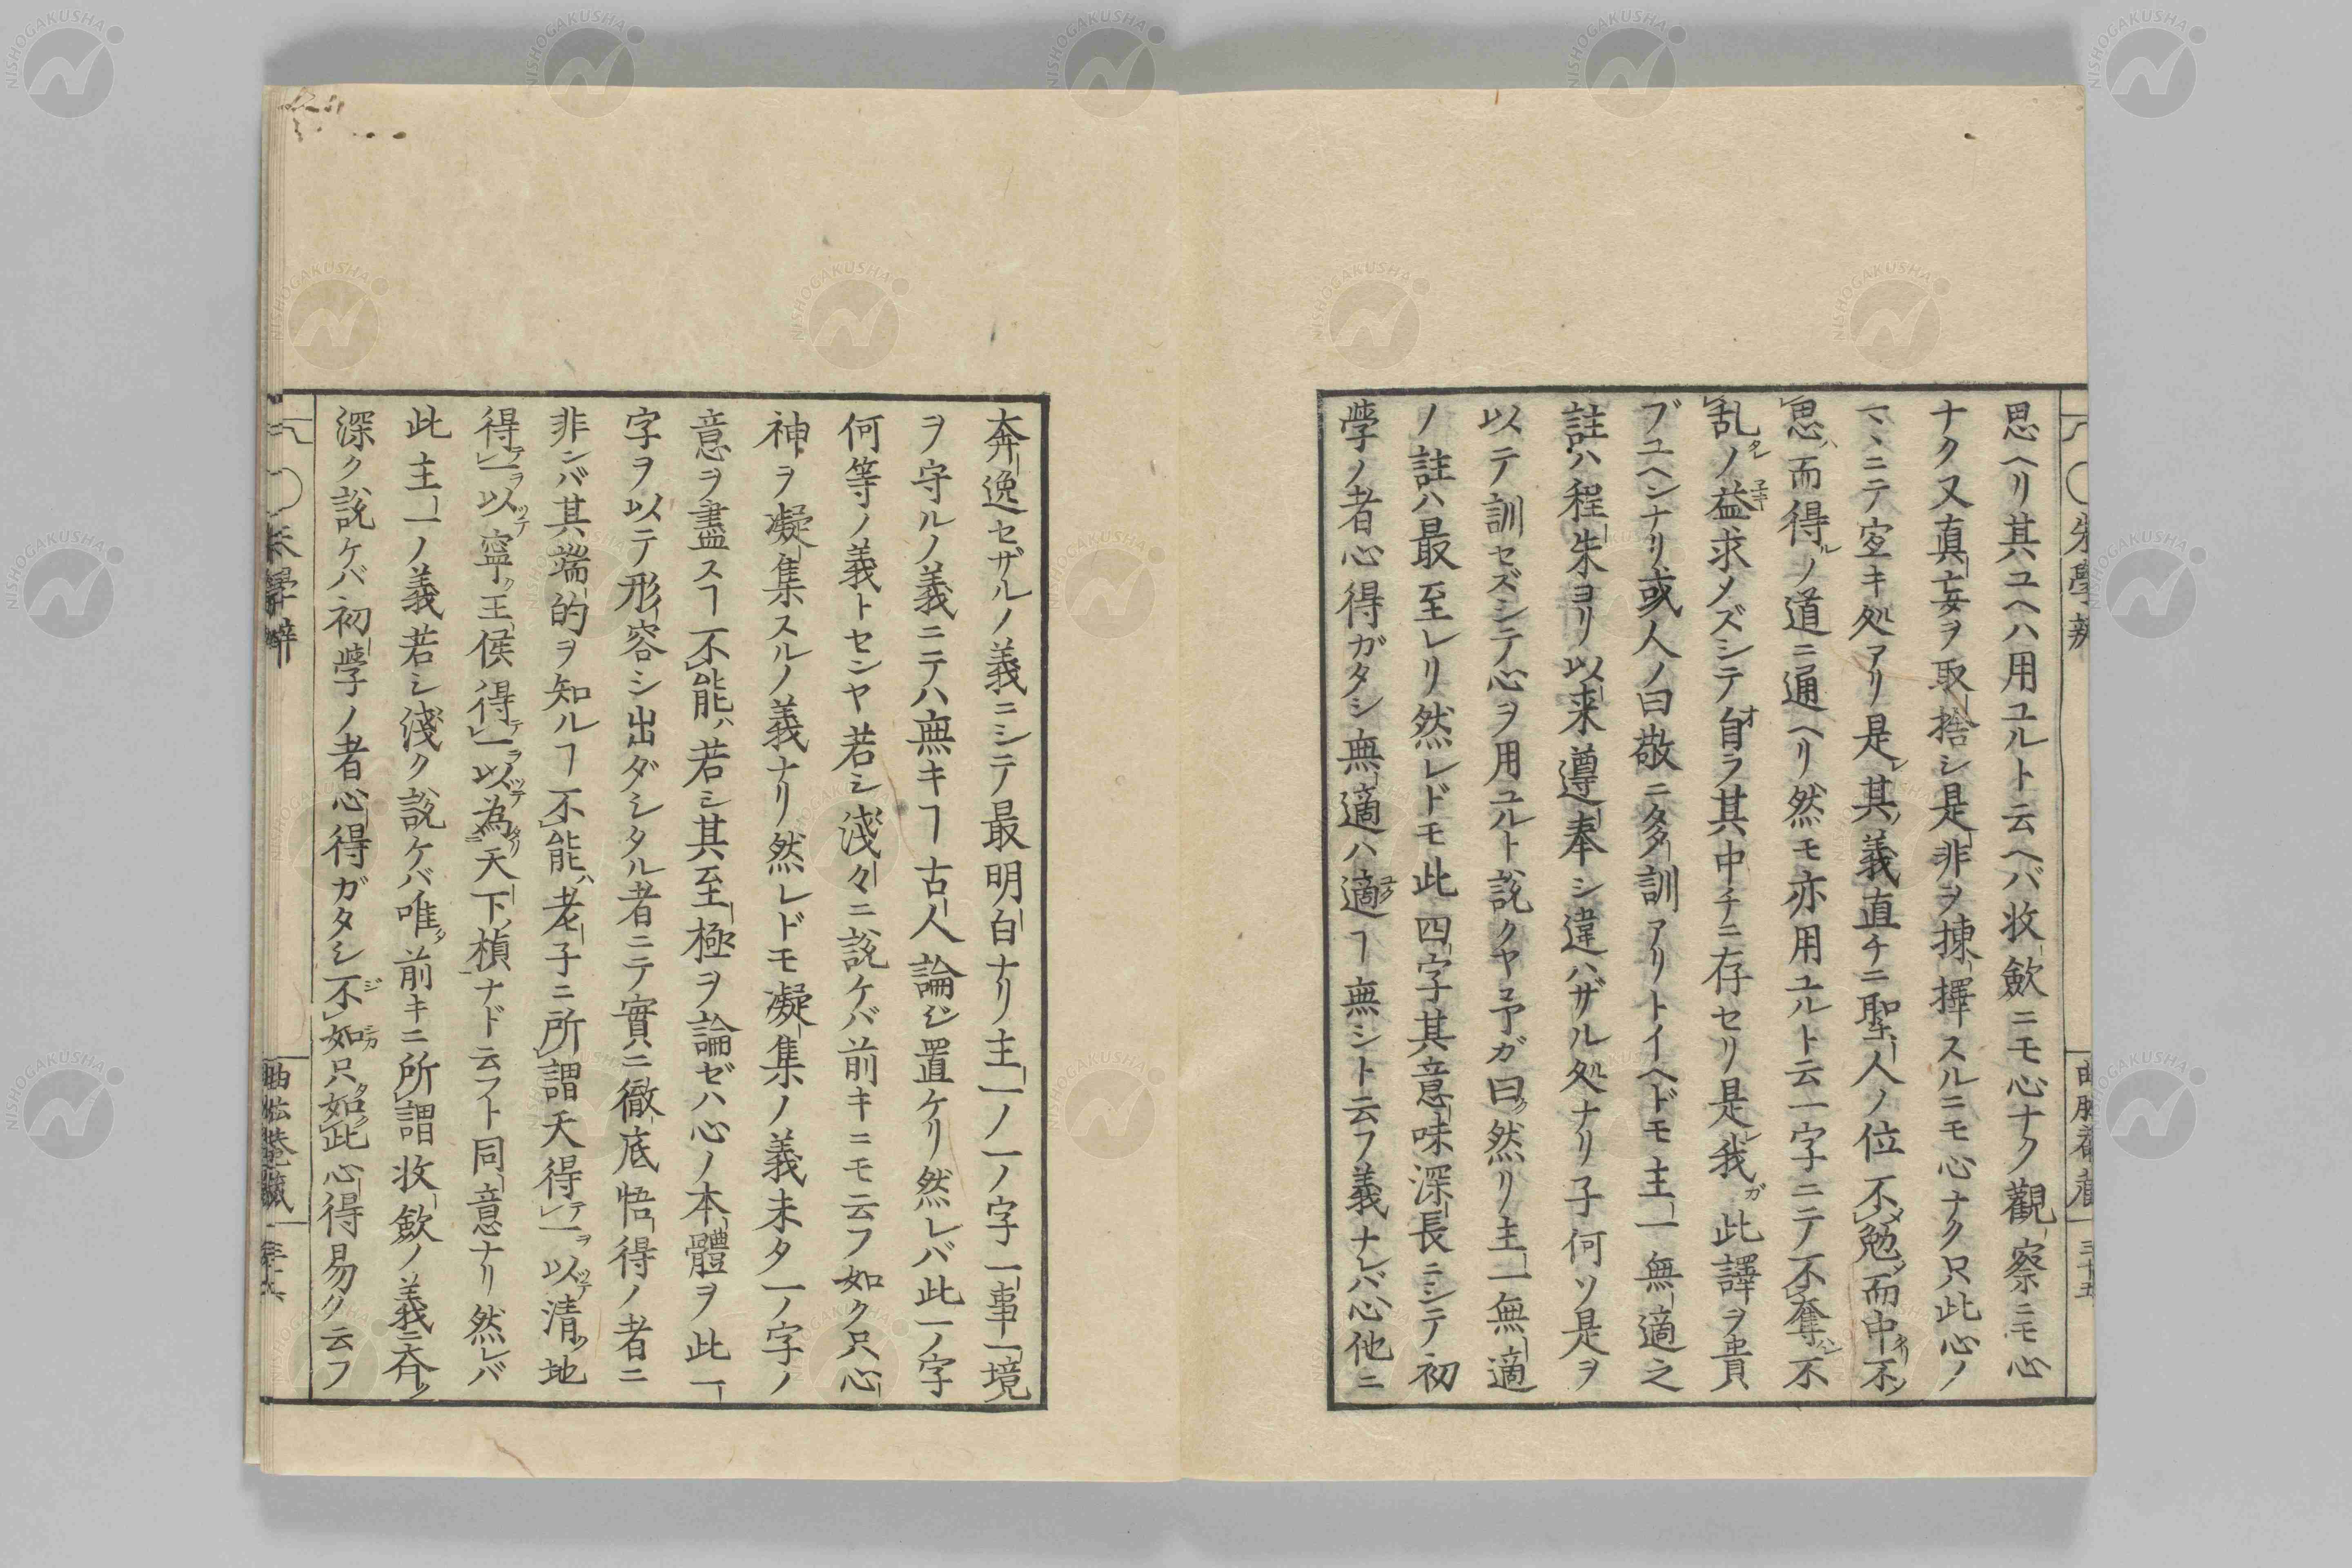 思ヘリ其ユヘハ用ユルト云ヘバ收歛ニモ心ナク觀察ニモ心
ナク又真妄ヲ取捨シ是非ヲ揀擇スルニモ心ナク只此心ノ
マヽニテ空キ処アリ是レ其ノ義直チニ聖人ノ位不勉メ而中タリ不ン
思ハ而得ルノ道ニ通ヘリ然モ亦用ユルト云一字ニテ不奪ハン不
乱タレノ益ヱキ求メズシテ自オラ其中チニ存セリ是レ我ガ此譯ヲ貴
ブユヘンナリ或人ノ曰敬ニ多訓アリトイヘドモ主一無適之
註ハ程朱ヨリ以来遵奉シ違ハザル処ナリ子何ソ是ヲ
以テ訓セズシテ心ヲ用ユルト説クヤ予ガ曰ク然リ主一無適
ノ註ハ最至レリ然レドモ此四字其意味深長ニシテ初
學ノ者心得ガタシ無適ハ適ユクヿ無シト云フ義ナレバ心他ニ
朱學辨
三十五
奔逸セザルノ義ニシテ最明白ナリ主一ノ一ノ字一事一境
ヲ守ルノ義ニテハ無キヿ古人論シ置ケリ然レバ此一ノ字
何等ノ義トセンヤ若シ淺々ニ説ケバ前キニモ云フ如ク只心
神ヲ凝集スルノ義ナリ然レドモ凝集ノ義未タ一ノ字ノ
意ヲ盡スヿ不能ハ若シ其至極ヲ論ゼハ心ノ本體ヲ此一
字ヲ以テ形容シ出ダシタル者ニテ實ニ徹底悟得ノ者ニ
非ンバ其端的ヲ知ルヿ不能ハ老子ニ所謂天得テ一ヲ以ッテ清ク地
得テ一ヲ以ッテ寧ク王侯得テ一ヲ以ッテ為タリ天下ノ楨ナド云フト同意ナリ然レバ
此主一ノ義若シ淺ク説ケバ唯タ前キニ所謂收歛ノ義ニ吞ク
深ク説ケバ初學ノ者心得ガタシ不ジ如シカ只タ如ク此心得易ク云フ
朱學辨